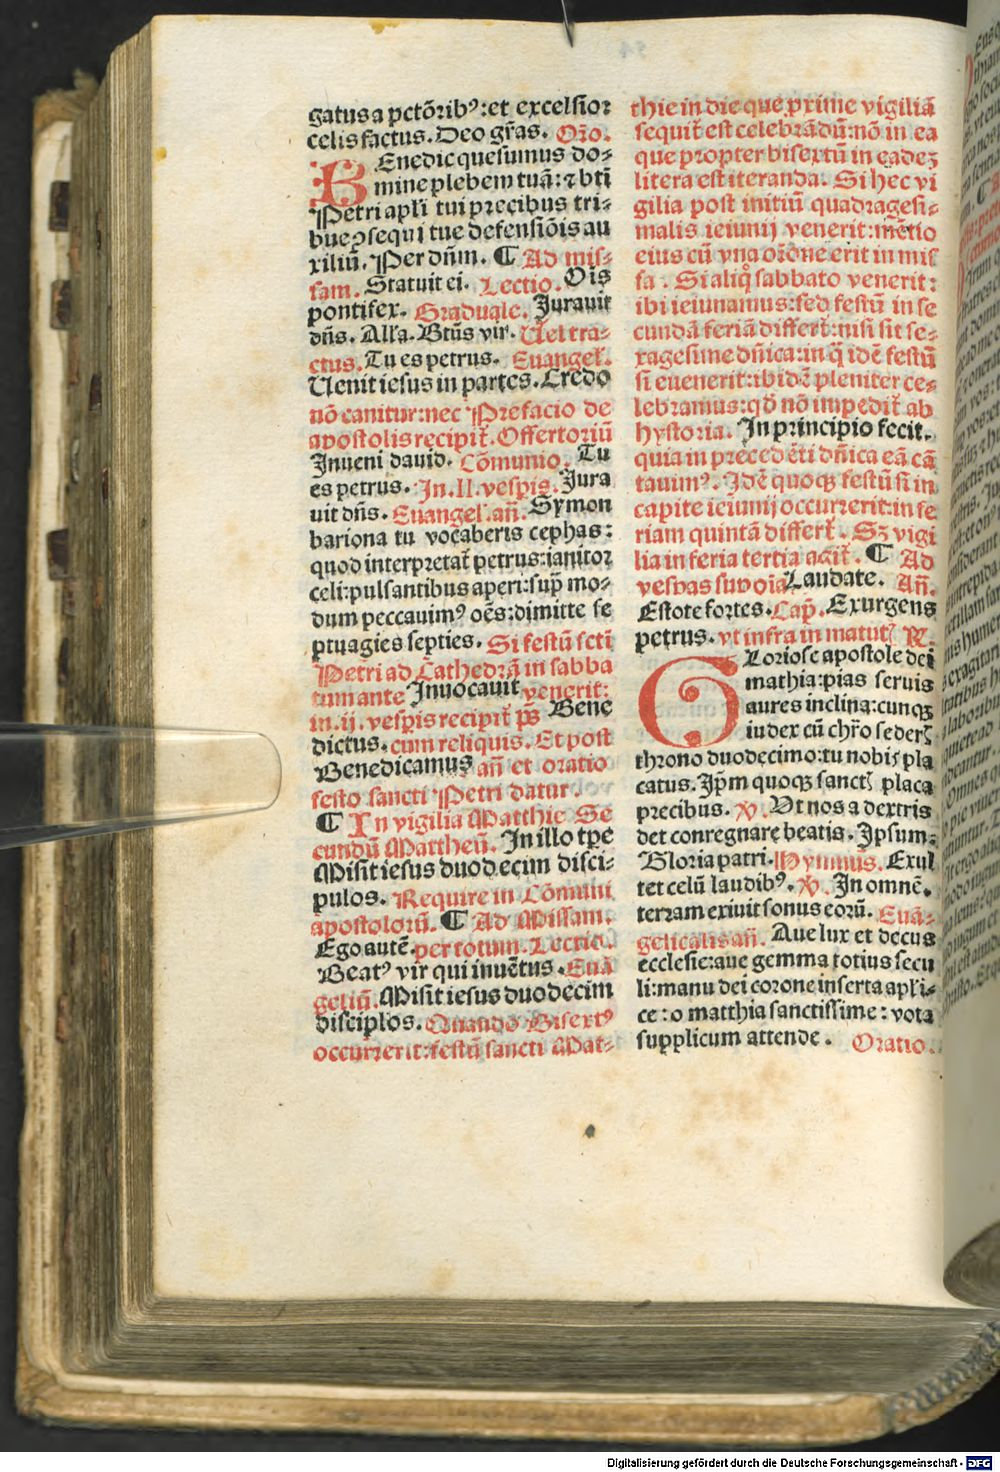 gatus a pctõribꝰ: et excelsior
celis factus. Deo gr̃as. Or̃o.
BEnedic quesumus do⸗
mine plebem tuã: ⁊ bt̃i
Petri apl̃i tui precibus tri⸗
bue ꝯsequi tue defensiõis au
xiliũ. Per dñm. ¶ Ad mis⸗
sam. Statuit ei. Lectio. Ois
pontifex. Graduale. Jurauit
dñs. Alľa. Btũs vir. Uel tra⸗
ctus. Tu es petrus. Euangel̃.
Uenit iesus in partes. Credo
nõ canitur: nec Prefacio de
apostolis recipit̃. Offertoriũ
Jnueni dauid. Cõmunio. Tu
es petrus. Jn. II. vesp̃is. Jura
uit dñs. Euangel̃. añ. Symon
bariona tu vocaberis cephas:
quod interpretat̃ petrus: ianitor
celi: pulsantibus aperi: sup̃ mo⸗
dum peccauimꝰ oẽs: dimitte se
ptuagies septies. Si festũ scti
Petri ad Cathedrã in sabba
tum ante Jnuocauit venerit:
in. ij. vesp̃is recipit̃ p̃s Bene
dictus. cum reliquis. Et post
Benedicamus añ et oratio
festo sancti Petri datur.
¶ In vigilia Matthie Se
cundũ Mattheũ. Jn illo tp̃e
Misit iesus duodecim disci⸗
pulos. Require in Cõmuni
apostolorũ. ¶ Ad Missam.
Ego autẽ. per totum. Lectio.
Beatꝰ vir qui inuẽtus. Euã
geliũ. Misit iesus duodecim
disciplos. Quando Bisextꝰ
occurrerit: festũ sancti Mat⸗
thie in die que prime vigiliã
sequit̃ est celebrãdũ: nõ in ea
que propter bisextũ in eadeꝫ
litera est iteranda. Si hec vi
gilia post initiũ quadragesi⸗
malis ieiunij venerit: mẽtio
eius cũ vna or̃one erit in mis
sa. Si aliq̃ sabbato venerit:
ibi ieiunamus: sed festũ in se
cundã feriã differt̃: nisi sit se⸗
xagesime dñica: in q̃ idẽ festũ
si euenerit: ibidẽ pleniter ce⸗
lebramus: qđ nõ impedit̃ ab
hystoria. Jn principio fecit.
quia in precedẽti dñica eã cã
tauimꝰ. Jdẽ quoqꝫ festũ si in
capite ieiunij occurrerit: in fe
riam quintã differt̃. Sꝫ vigi
lia in feria tertia agit̃. ¶ Ad
vesp̃as sup̃ oĩa Laudate. Añ.
Estote fortes. Cap̃. Exurgens
petrus. vt infra in matut̃ R̃.
GLoriose apostole dei
mathia: pias seruis
aures inclina: cunqꝫ
iudex cũ chr̃o seder̃
throno duodecimo: tu nobis pla
catus. Jp̃m quoqꝫ sanct̃ placa
precibus. ℣. Ut nos a dextris
det conregnare beatis. Jpsum:
Gloria patri. Hymnus. Exul
tet celũ laudibꝰ. ℣. Jn omnẽ.
terram exiuit sonus eorũ. Euã⸗
gelicalis añ. Aue lux et decus
ecclesie: aue gemma totius secu
li: manu dei corone inserta apl̃i⸗
ce: o matthia sanctissime: vota
supplicum attende. Oratio.
Digitalisierung gefördert durch die Deutsche Forschungsgemeinschaft - DFG